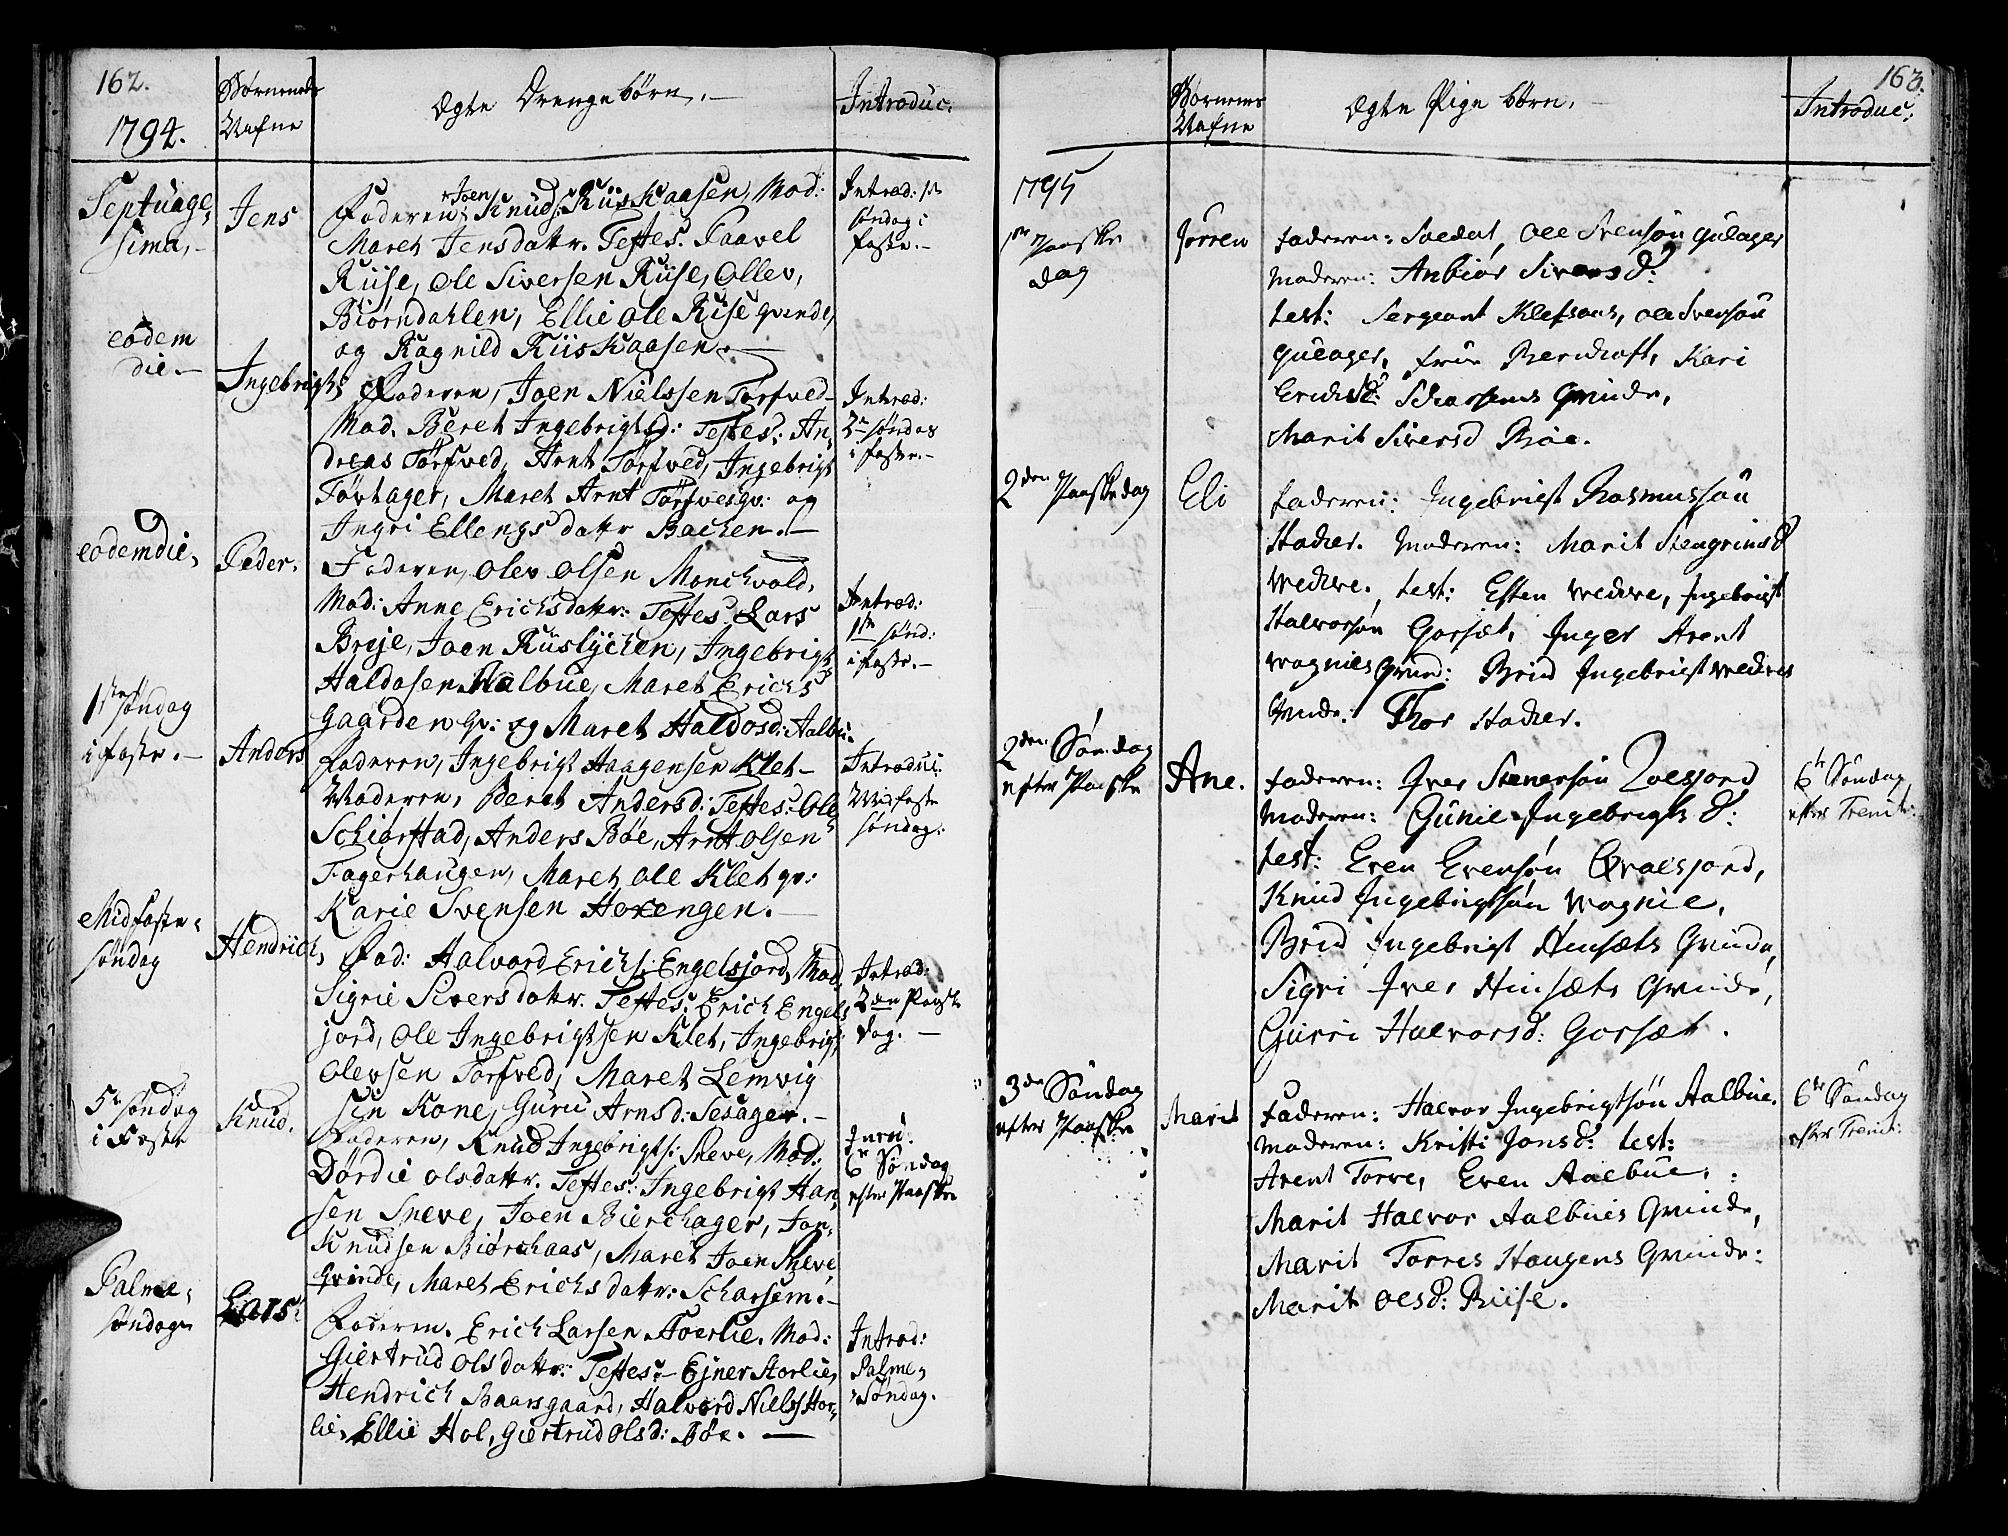 162.
1794.
Børnenes
Nafne
Ægte Drengebørn.
Introduc:
Septuage
sima,
Jens
Faderen Joen Knuds: Riiskaasen, Mod:
Maret Jensdattr. Testes: Paavel
Riise, Ole Siversen Riise, Ollev,
Biørndahlen, Ellie Ole Rise qvinde,
og Ragnild Riiskaasen.
Introd: 1te
søndag i
faste.
eodem
die.
Ingebrigt
Faderen, Joen Nielssen Torfved
Mod. Beret Ingebrigtsd: Testes: An
dreas Torfved, Arnt Torfved, Ingebrigt
Maret Arnt Torfvesqv: og
Ingri Ellengs dattr Bachen.
Introd:
2n søndag
i faste.
eodem die,
Peder.
Faderen, Olev Olsen Monchvold,
Mod: Anne Erichsdattr: Testes: Lars
Breje, Joen Riislychen, Ingebrigt
Haldosen Aalbue, Maret Erichs
gaarden qv: og Maret Haldosd: Aalbu.
Introd:
1te sønd:
i faste.
1ste søndag
i faste.
Anders
Faderen, Ingebrigt Haagensen Klet
Moderen, Beret Andersd: Testes: Ole
Schiørstad, Anders Bøe, Arnt Olsen
Fagerhaugen, Maret Ole Klet qv:
Karie Svensen Horengen.
Introduc:
Midfaste
søndag.
Midfaste
søndag
Hendrich,
Fad: Halvord Erichs: Engelsjord, Mod,
Sigrie Siversdattr. Testes: Erich Engels
jord, Ole Ingebrigtssen Klet, Ingebrigt
Olevsen Torfved, Maret Lemvig
sin Kone, Guru Arnsd: Sesager.
Introd:
2den Paaske
dag.
5te søndag
i Faste
Knud.
Faderen, Knud Ingebrigts: Sneve, Mod:
Dørdie Olsdattr. Testes: Ingebrigt Han
sen Sneve, Joen Bierchager, Jon
Knudsen Biørchaas, Maret Joen Sneve
Qvinde, Maret Erichsdattr: Scharsem.
6 Søndag
efter Paaske
Palme
søndag
Lars.
Faderen. Erich Larsen Hoerlie. Mod:
Giertrud Olsdattr: Testes: Ejner Horlie,
Hendrich Baarsgaard, Halvord Niels: Hor
lie, Ellie Hol, Giertrud Olsd: Bøe.
Introd:
Palme
Søndag.
163.
Børnenes
Nafne
Ægte Pige børn.
Introduc:
1795
1ste Paaske
dag
Jørren
faderen: Soldat, Ole Svensøn Gulager
moderen: Anbior Sivers D:
test: Sergeant Klefsaas, Ole Svensøn
Gulager, frue Berchoft, Kari
Erichsd: Scharsems Qvinde,
Marit Siversd Bøe.
2den Paaske dag
Eli
faderen: Ingebrigt Rasmussøn
Stadier. moderen: Marit Stengrimsd
test: Esten
Halvorsøn Gorset, Inger Arent
wognies Qvind: Brid Ingebrigt
Qvinde. Thor Stadier.
2den Søndag
efter Paaske
Ane.
faderen: Iver Steenersøn
moderen: Gunie Ingebrigts D:
test: Even Evensøn
Knud Ingebrigtsøn wognie,
Brid Ingebrigt Hinsæts Qvinde,
Sigri Iver Hinsæts Qvinde,
Gurri Halvorsd: Gorsæt.
6te Søndag
efter Trenit:
3de Søndag
efter Paaske
Marit
faderen: Halvor Ingebrigtsøn Aalbue.
moderen: Kristi Jonsd: test:
Arent Torve, Even Aalbue,
Marit Halvor Aalbues Qvinde,
Marit Torres Haugens Qvinde:
Marit Olsd: Riise.
6te Søndag
efter Trenit: